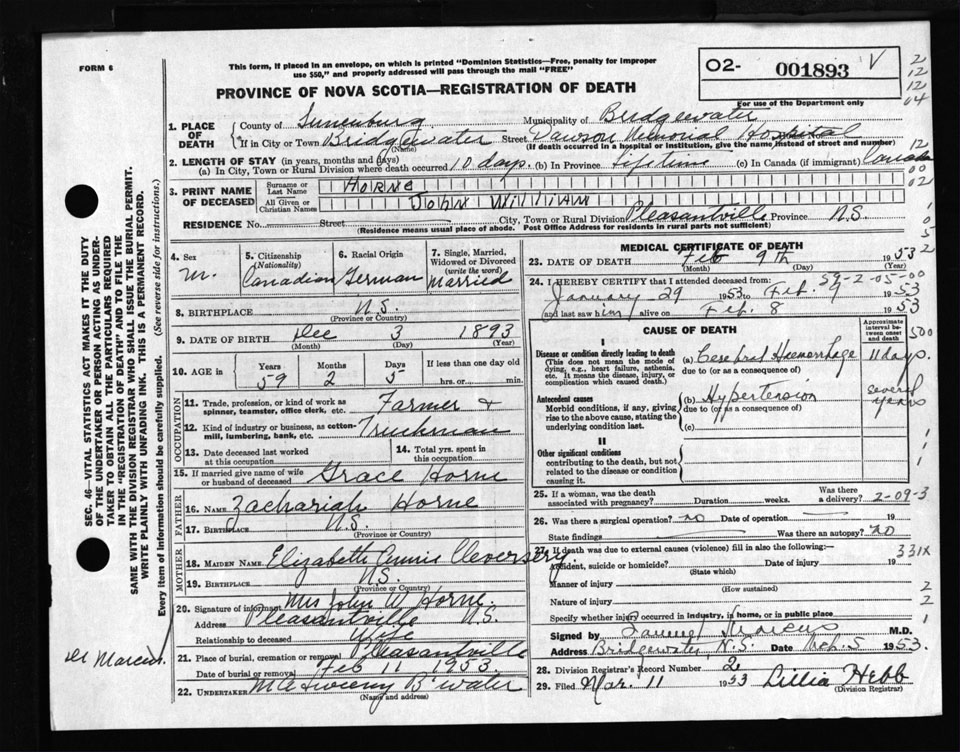 FORM 6
This form, if placed in an envelope, on which is printed "Dominion Statistics—Free, penalty for improper
use $50," and properly addressed will pass through the mail "FREE"
O2- 001893 V
For use of the Department only
2
12
12
04
PROVINCE OF NOVA SCOTIA—REGISTRATION OF DEATH
1. PLACE OF DEATH
County of Lunenburg Municipality of Bridgewater
If in City or Town Bridgewater Street Dawson Memorial Hospital
(Name) (If death occurred in a hospital or institution, give the name instead of street and number)
12
2. LENGTH OF STAY (in years, months and days)
(a) In City, Town or Rural Division where death occurred 10 days. (b) In Province Lifetime (c) In Canada (if immigrant) Canada
00
3. PRINT NAME OF DECEASED
Surname or Last Name HORNE
02
All Given or Christian Names JOHN WILLIAM
RESIDENCE No. Street City, Town or Rural Division Pleasantville Province N.S.
(Residence means usual place of abode. Post Office Address for residents in rural parts not sufficient)
4. Sex M.
5. Citizenship (Nationality) Canadian
6. Racial Origin German
7. Single, Married, Widowed or Divorced (write the word) Married
8. BIRTHPLACE N.S.
(Province or Country)
9. DATE OF BIRTH Dec 3 1893
(Month) (Day) (Year)
10. AGE in Years Months Days If less than one day old
59 2 5 hrs. or min.
OCCUPATION
11. Trade, profession, or kind of work as spinner, teamster, office clerk, etc. Farmer &
12. Kind of industry or business, as cotton-mill, lumbering, bank, etc. Truckman
13. Date deceased last worked at this occupation
14. Total yrs. spent in this occupation
15. If married give name of wife or husband of deceased Grace Horne
FATHER
16. NAME Zachariah Horne
17. BIRTHPLACE N.S.
(Province or Country)
MOTHER
18. MAIDEN NAME Elizabeth Annis
19. BIRTHPLACE N.S.
(Province or Country)
20. Signature of informant Mrs John W. Horne.
Address Pleasantville N.S.
Relationship to deceased Wife
21. Place of burial, cremation or removal Pleasantville
Date of burial or removal Feb 11 1953.
22. UNDERTAKER B'water
(Name and address)
MEDICAL CERTIFICATE OF DEATH
23. DATE OF DEATH Feb 9th 1953
(Month) (Day) (Year)
24. I HEREBY CERTIFY that I attended deceased from: 59-2-05-00
January 29 1953 to Feb. 9 1953
and last saw him alive on Feb. 8 1953
CAUSE OF DEATH
Approximate interval between onset and death
I
Disease or condition directly leading to death
(This does not mean the mode of dying, e.g., heart failure, asthenia, etc. It means the disease, injury, or complication which caused death.)
(a) Cerebral Haemorrhage 11 days.
due to (or as a consequence of)
Antecedent causes
Morbid conditions, if any, giving rise to the above cause, stating the underlying condition last.
(b) Hypertension several years
due to (or as a consequence of)
(c)
II
Other significant conditions
contributing to the death, but not related to the disease or condition causing it.
25. If a woman, was the death associated with pregnancy? Duration weeks. Was there a delivery? 2-09-3
26. Was there a surgical operation? no Date of operation 19
State findings Was there an autopsy? no
27. If death was due to external causes (violence) fill in also the following:— 331X
Accident, suicide or homicide? Date 19
(State which)
Manner of injury
(How sustained)
Nature of injury
Specify whether injury occurred in industry, in home, or in public place
Signed by Marcus M.D.
Address Bridgewater, N.S. Date Mch. 5 1953.
28. Division Registrar's Record Number 2
29. Filed Mar. 11 1953 Lillia Hebb
(Division Registrar)
SEC. 46—VITAL STATISTICS ACT MAKES IT THE DUTY
OF THE UNDERTAKER OR PERSON ACTING AS UNDER-
TAKER TO OBTAIN ALL THE PARTICULARS REQUIRED
IN THE "REGISTRATION OF DEATH" AND TO FILE THE
SAME WITH THE DIVISION REGISTRAR WHO SHALL ISSUE THE BURIAL PERMIT.
WRITE PLAINLY WITH UNFADING INK. THIS IS A PERMANENT RECORD.
Every item of information should be carefully supplied. (See reverse side for instructions.)
Dr Marcus.